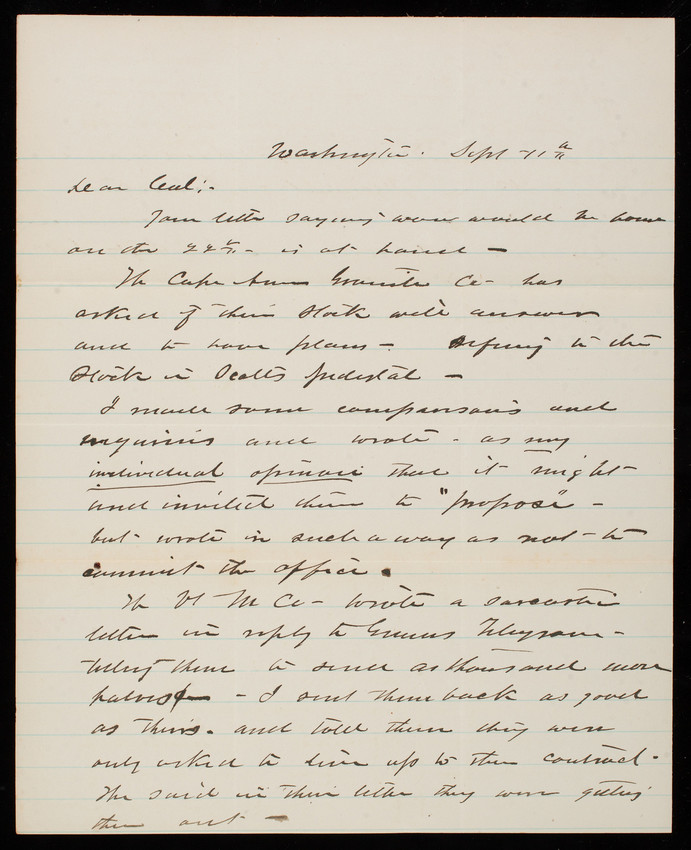 Washington. Sept 11th
Dear Casl:-
Your letter saying would be home
on the 22d - is at hand -
The Cape Ann Granite Co - has
asked if their stock will answer
and to have plans - refering to the
Stock in Scotts pedestal -
I made some comparisons and
inquiries and wrote - as my
individual opinion that it might
and invited them to "propose" -
but wrote in such a way as not to
commit the office.
The Vt M Co - wrote a sarcastic
letter in reply to Telegram -
telling them to send a thousand more
- I sent them back as good
as theirs. and told them they were
only asked to live up to their contract -
He said in their letter they were getting
them out -